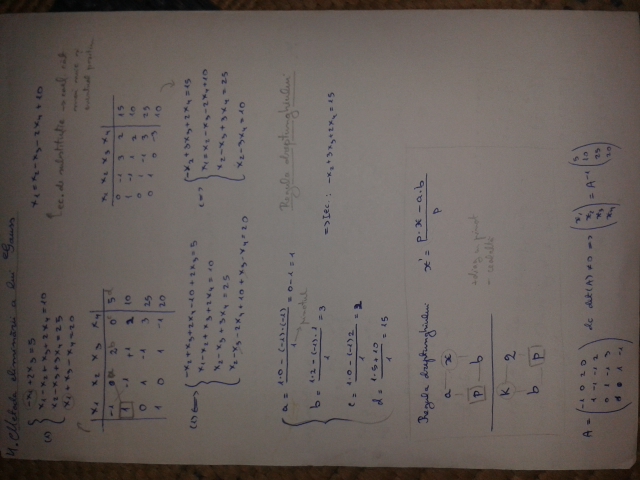 4. Metoda eliminării a lui Gauss
(1) { -x₁ + 2x₃ = 5
x₁ - x₂ + x₃ + 2x₄ = 10
x₂ - x₃ + 3x₄ = 25
x₁ + x₃ - x₄ = 20
x₁ = x₂ - x₃ - 2x₄ + 10
ec. de substituție → cel
x₁ x₂ x₃ x₄
-1 0 2 0 5
1 -1 +1 2 10
0 1 -1 3 25
1 0 1 -1 20
x₁ x₂ x₃ x₄
0 -1 3 2 15
1 -1 1 2 10
0 1 -1 3 25
0 1 0 -3 10
(1) <=> { -x₂ + x₃ + 2x₄ - 10 + 2x₃ = 5
x₁ - x₂ + x₃ + 2x₄ = 10
x₂ - x₃ + 3x₄ = 25
x₂ - x₃ - 2x₄ + 10 + x₃ - x₄ = 20
<=> { -x₂ + 3x₃ + 2x₄ = 15
x₁ = x₂ - x₃ - 2x₄ + 10
x₂ - x₃ + 3x₄ = 25
x₂ - 3x₄ = 10
a = (1·0 - (-1)·(-1))/1 = 0 - 1 = 1
pivotul
b = (1·2 - (-1)·1)/1 = 3
c = (1·0 - (-1)2)/1 = 2
d = (1·5 + 10)/1 = 15
Regula dreptunghiului
=> I ec.: -x₂ + 3x₃ + 2x₄ = 15
Regula dreptunghiului x' = (p·x - a·b)/p
a — x
p — b
k — 2
b — p
+ diag. pivot
- cealaltă
A = ( -1 0 2 0
1 -1 -1 2
0 1 -1 3
1 0 1 -1 )
dc det(A) ≠ 0 => (x₁ x₂ x₃ x₄) = A⁻¹ (5 10 25 20)